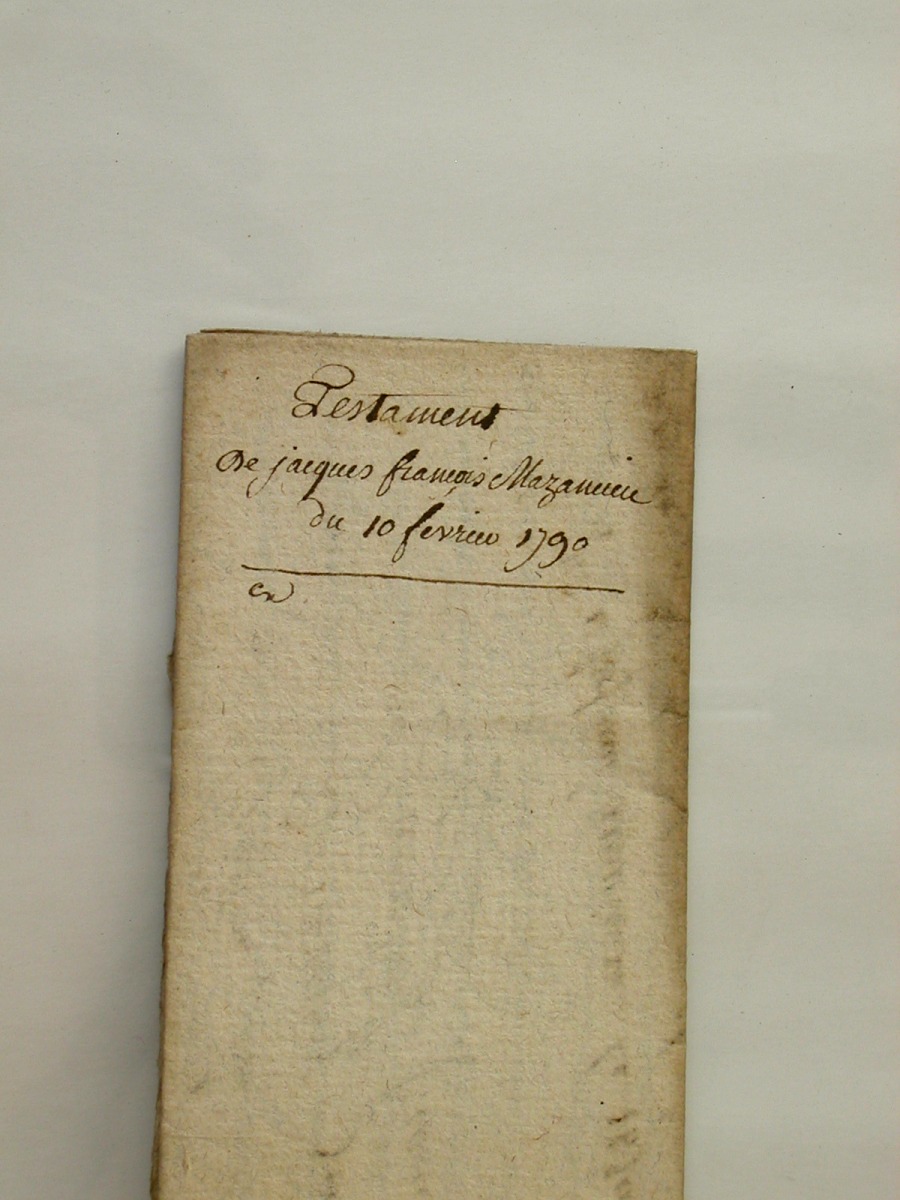 Testament
De jacques francois Mazancieu
du 10 fevrier 1790